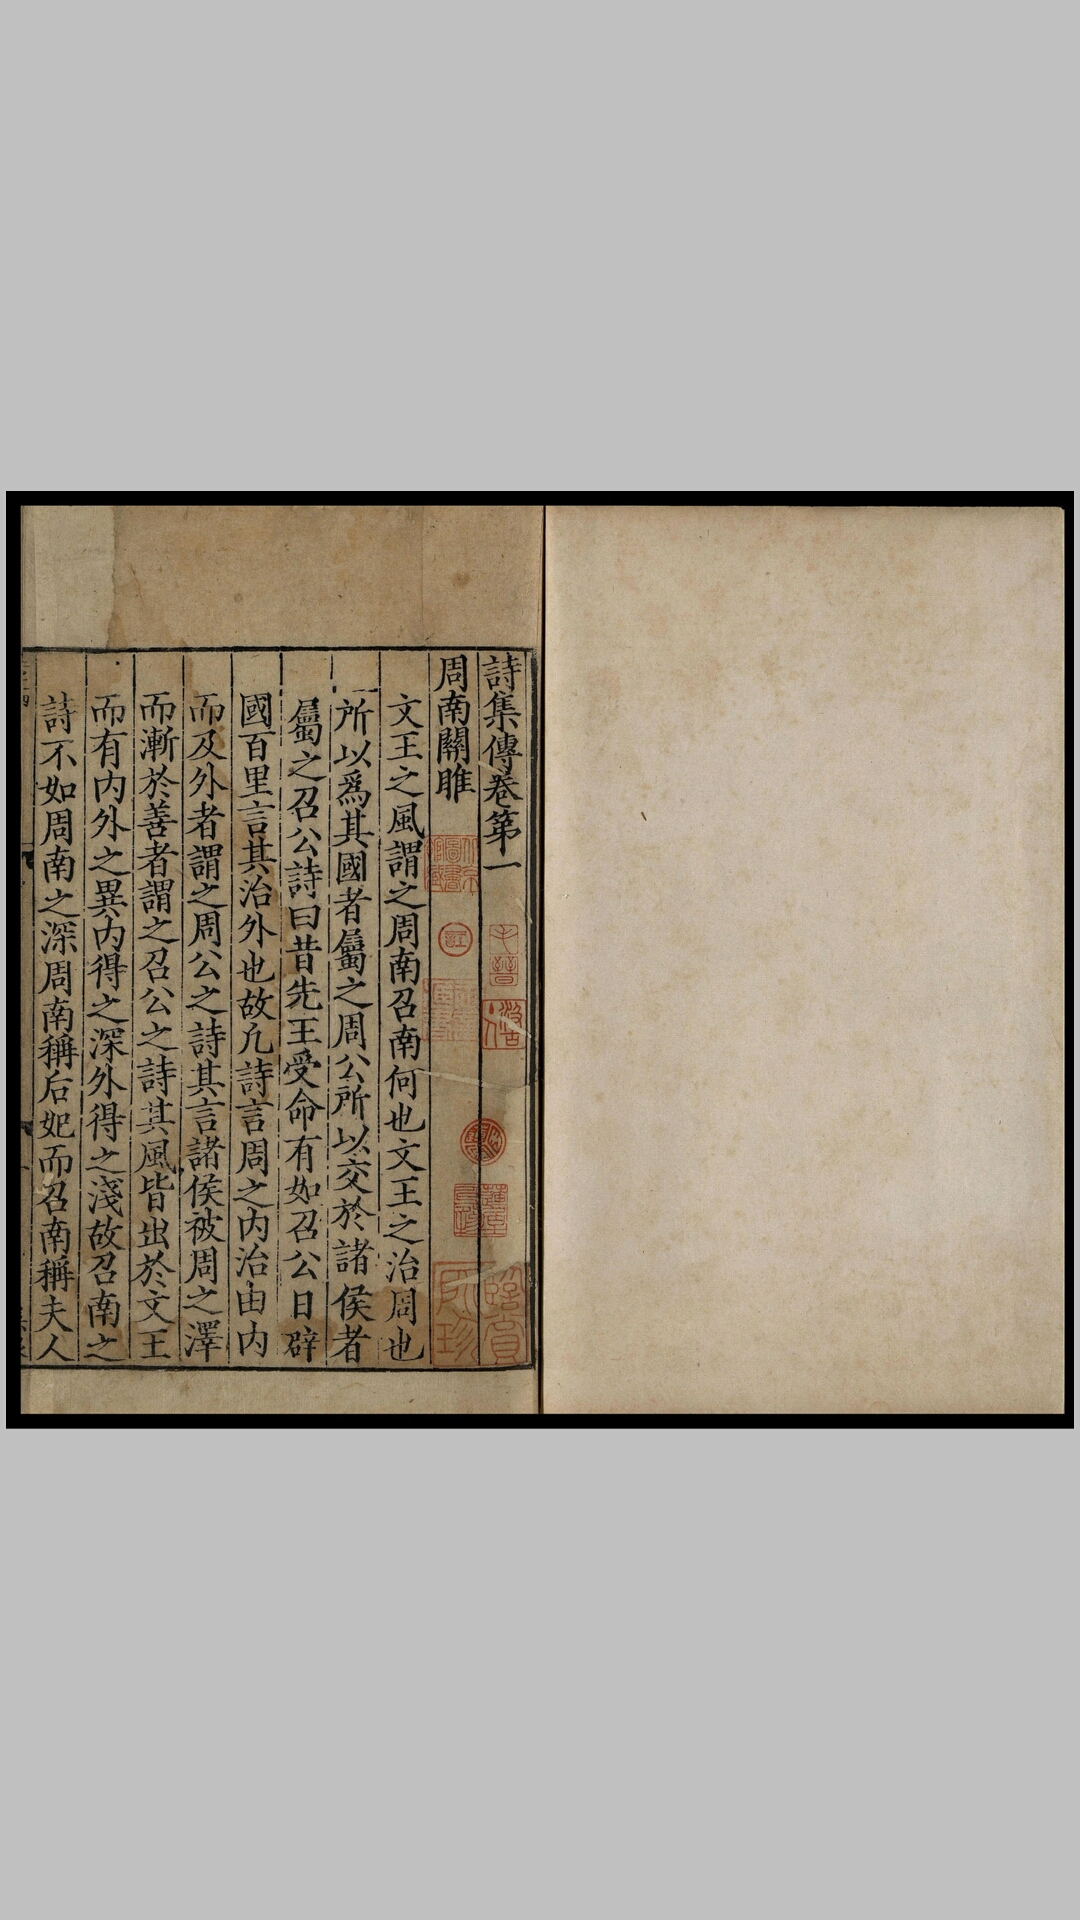 詩集傳卷第一
周南關雎
文王之風謂之周南召南何也文王之治周也
所以爲其國者屬之周公所以交於諸侯者
屬之召公詩曰昔先王受命有如召公日辟
國百里言其治外也故凡詩言周之内治由内
而及外者謂之周公之詩其言諸侯被周之澤
而漸於善者謂之召公之詩其風皆出於文王
而有内外之異内得之深外得之淺故召南之
詩不如周南之深周南稱后妃而召南稱夫人
毛晉